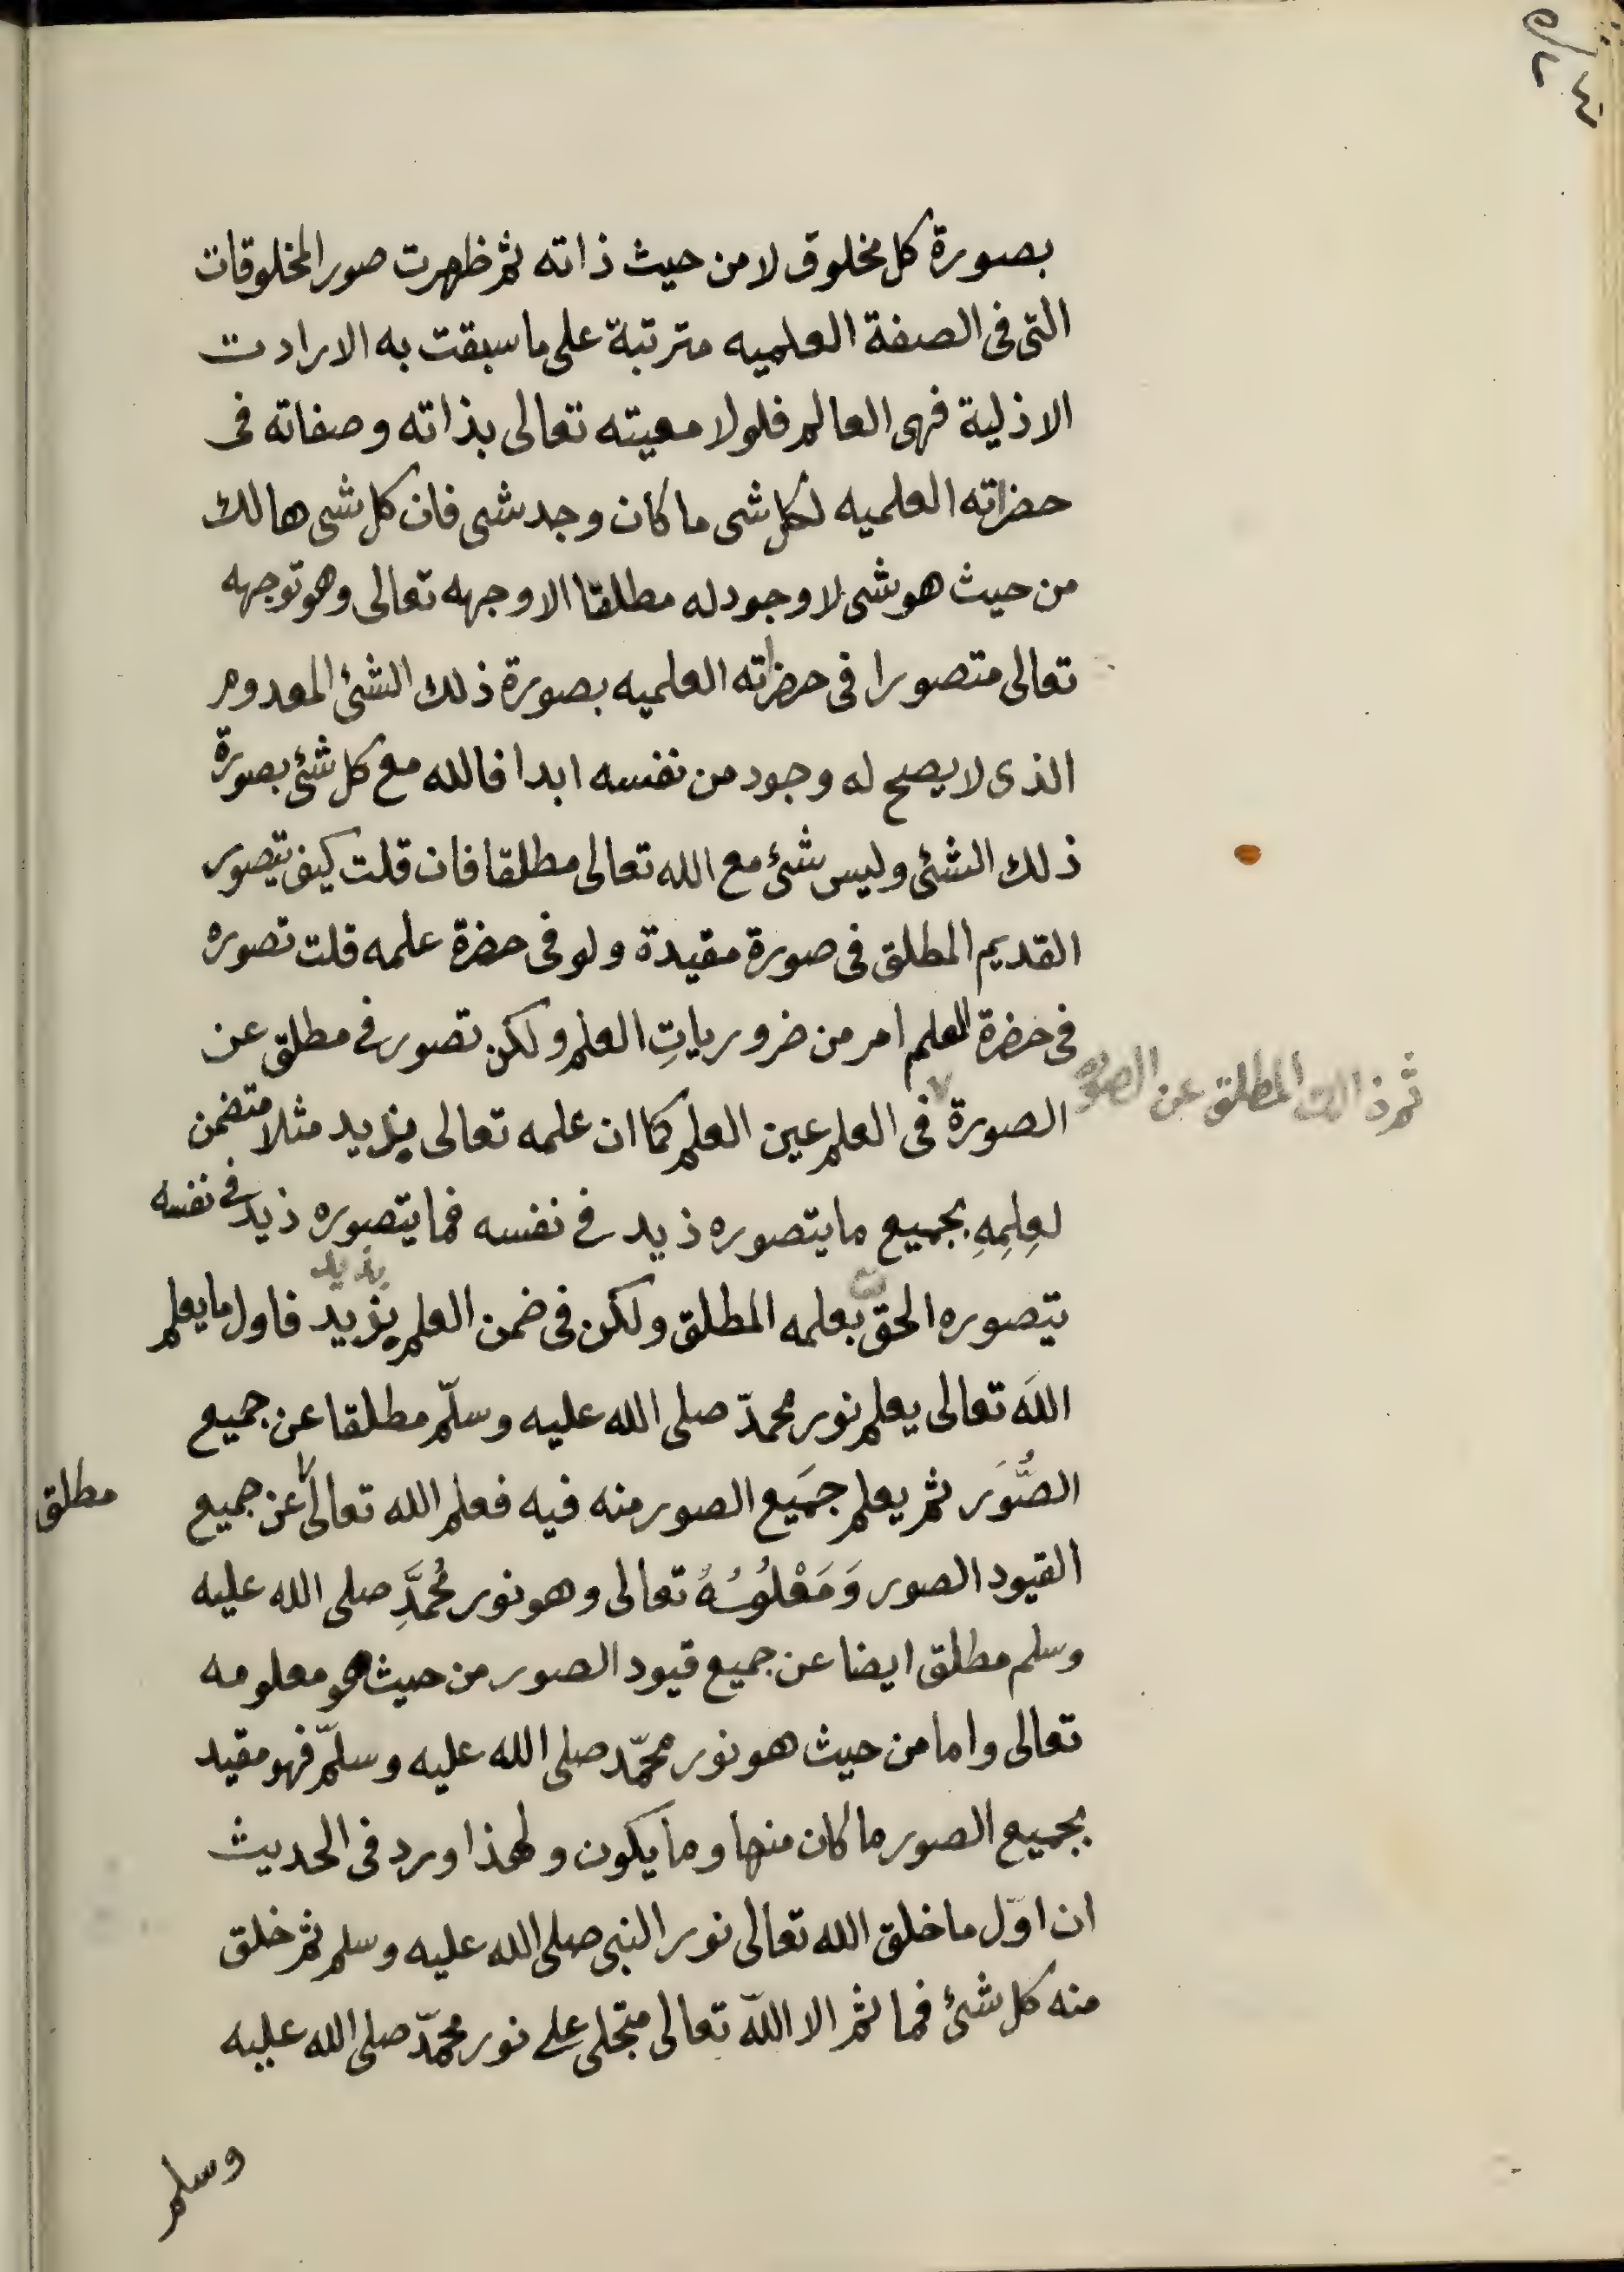 بصورة كل مخلوق لا من حيث ذاته ثم ظهرت صور المخلوقات
التى فى الصفة العلميه مترتبة على ما سبقت به الارادت
الاذلية فهى العالم فلولا معيته تعالى بذاته وصفاته فى
حضراته العلميه لكل شى ما كان وجد شى فان كل شى هالك
من حيث هو شى لا وجود له مطلقا الا وجهه تعالى وهو توجهه
تعالى متصورا فى حضراته العلميه بصورة ذلك الشئ المعدوم
الذى لا يصح له وجود من نفسه ابدا فالله مع كل شئ بصورة
ذلك الشئ وليس شئ مع الله تعالى مطلقا فان قلت كيف يتصور
القديم المطلق فى صورة مقيدة ولو فى حضرة علمه قلت تصوره
فى حضرة العلم امر من ضرورياتِ العلم ولكن تصور فى مطلق عن
ثم ذالك المطلق عن الصورة
الصورة فى العلم عين العلم كما ان علمه تعالى بزيد مثلا متضمن
لعِلِمِهِ بجميع ما يتصوره ذيد فى نفسه فما يتصوره ذيد فى نفسه
بذيد
يتصوره الحق بعلمه المطلق ولكن فى ضمن العلم بزيد فاول ما يعلم
اللَه تعالى يعلم نور محمدّ صلى الله عليه وسلّم مطلقا عن جميع
الصُّوَر ثم يعلم جمَيع الصور منه فيه فعلم الله تعالى عن جميع
مطلق
القيود الصور وَمَعْلُومُهُ تعالى وهو نور مُحمَّدِ صلى الله عليه
وسلم مطلق ايضا عن جميع قيود الصور من حيث هو معلومه
تعالى واما من حيث هو نور محمّد صلى الله عليه وسلّم فهو مقيد
بجميع الصور ما كان منها وما يكون ولهذا ورد فى الحديث
ان اوّل ما خلق الله تعالى نور النبى صلى الله عليه وسلم ثم خلق
منه كل شئ فما ثم الا اللّه تعالى متجلى على نور محمّد صلى الله عليه
وسلم